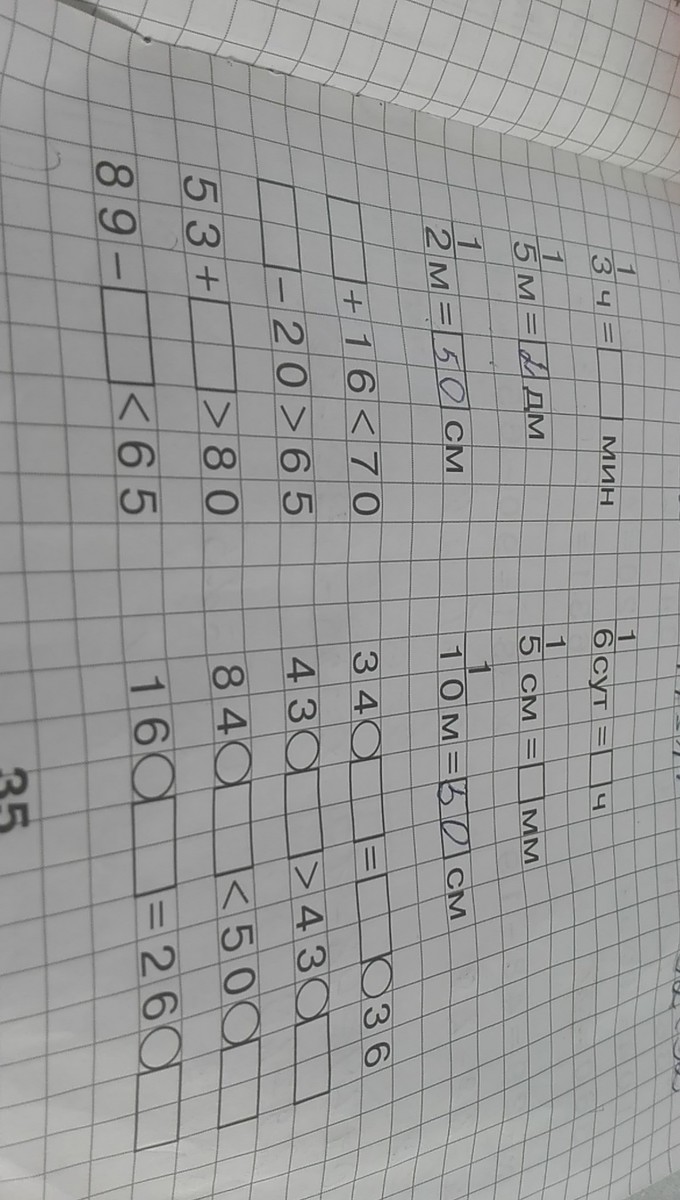 1/3 ч = □ мин 1/6 сут = □ ч
1/5 м = 2 дм 1/5 см = □ мм
1/2 м = 50 см 1/10 м = 50 см
□ + 16 < 70 34 ○ □ = □ ○ 36
□ − 20 > 65 43 ○ □ > 43 ○ □
53 + □ > 80 84 ○ □ < 50 ○ □
89 − □ < 65 16 ○ □ = 26 ○ □
35